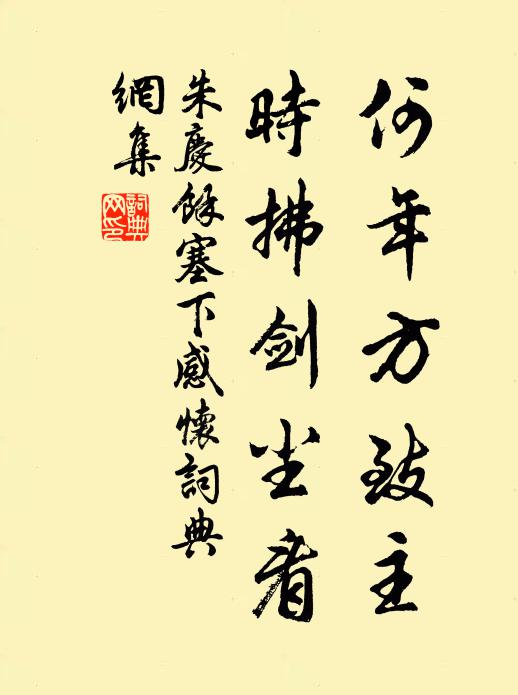 何年方致主
時拂剑尘看
朱慶餘塞下感懷詞典
網集
詞典
网印